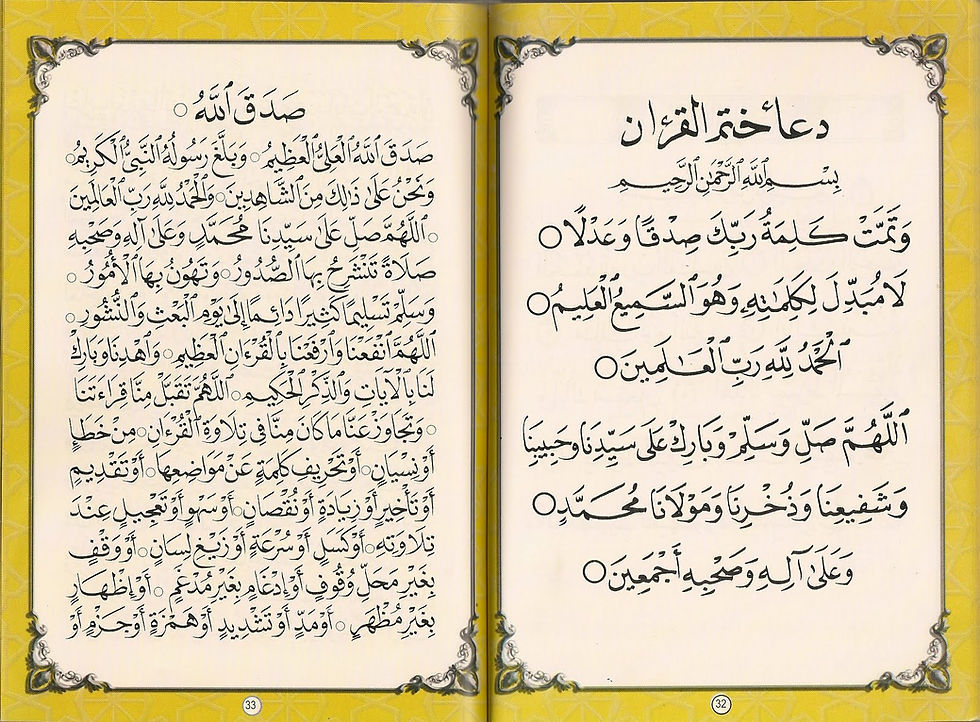 دعاء ختم القرءان
بِسْمِ ٱللَّهِ ٱلرَّحْمَٰنِ ٱلرَّحِيمِ
وَتَمَّتْ كَلِمَةُ رَبِّكَ صِدْقًا وَعَدْلًا ○
لَا مُبَدِّلَ لِكَلِمَٰتِهِ وَهُوَ ٱلسَّمِيعُ ٱلْعَلِيمُ ○
ٱلْحَمْدُ لِلَّهِ رَبِّ ٱلْعَٰلَمِينَ ○
ٱللَّهُمَّ صَلِّ وَسَلِّمْ وَبَارِكْ عَلَى سَيِّدِنَا وَحَبِيبِنَا
وَشَفِيعِنَا وَذُخْرِنَا وَمَوْلَانَا مُحَمَّدٍ ○
وَعَلَىٰ آلِهِ وَصَحْبِهِ أَجْمَعِينَ ○
32
صَدَقَ ٱللَّهُ ○
صَدَقَ ٱللَّهُ ٱلْعَلِىُّ ٱلْعَظِيمُ ○ وَبَلَّغَ رَسُولُهُ ٱلنَّبِىُّ ٱلْكَرِيمُ ○
وَنَحْنُ عَلَىٰ ذَالِكَ مِنَ ٱلشَّاهِدِينَ ○ وَٱلْحَمْدُ لِلَّهِ رَبِّ ٱلْعَالَمِينَ
○ ٱللَّهُمَّ صَلِّ عَلَىٰ سَيِّدِنَا مُحَمَّدٍ وَعَلَىٰ آلِهِ وَصَحْبِهِ
صَلَاةً تَنْشَرِحُ بِهَا ٱلصُّدُورُ ○ وَتَهُونُ بِهَا ٱلْأُمُورُ ○
وَسَلِّمْ تَسْلِيمًا كَثِيرًا دَائِمًا إِلَىٰ يَوْمِ ٱلْبَعْثِ وَٱلنُّشُورِ ○
ٱللَّهُمَّ ٱنْفَعْنَا وَٱرْفَعْنَا بِٱلْقُرْءَانِ ٱلْعَظِيمِ ○ وَٱهْدِنَا وَبَارِكْ
لَنَا بِٱلْآيَاتِ وَٱلذِّكْرِ ٱلْحَكِيمِ ○ ٱللَّهُمَّ تَقَبَّلْ مِنَّا قِرَاءَتَنَا
○ وَتَجَاوَزْ عَنَّا مَا كَانَ مِنَّا فِى تِلَاوَةِ ٱلْقُرْءَانِ ○ مِنْ خَطَإٍ
أَوْ نِسْيَانٍ ○ أَوْ تَحْرِيفِ كَلِمَةٍ عَنْ مَوَاضِعِهَا ○ أَوْ تَقْدِيمٍ
أَوْ تَأْخِيرٍ أَوْ زِيَادَةٍ أَوْ نُقْصَانٍ ○ أَوْ سَهْوٍ أَوْ تَعْجِيلٍ عِنْدَ
تِلَاوَتِهِ ○ أَوْ كَسَلٍ أَوْ سُرْعَةٍ أَوْ زَيْغِ لِسَانٍ ○ أَوْ وَقْفٍ
بِغَيْرِ مَحَلِّ وُقُوفٍ أَوْ إِدْغَامٍ بِغَيْرِ مُدْغَمٍ ○ أَوْ إِظْهَارٍ
بِغَيْرِ مُظْهَرٍ ○ أَوْ مَدٍّ أَوْ تَشْدِيدٍ أَوْ هَمْزَةٍ أَوْ جَزْمٍ أَوْ
33